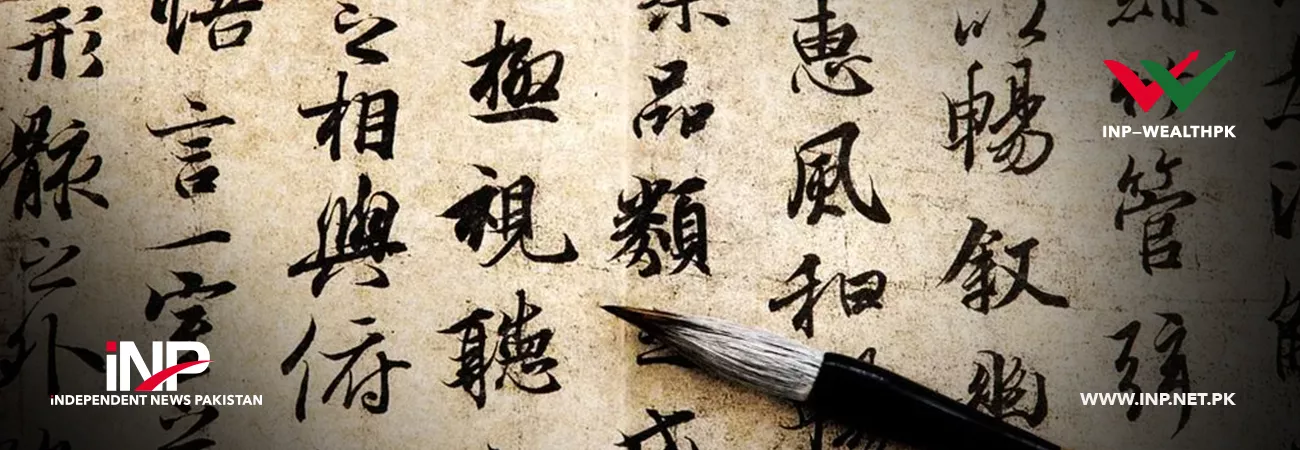 管弦
以暢叙幽
惠風和暢
品類之盛
極視聽
之相與俯
悟言一室之
形骸之外
INP–WEALTHPK
iNP
iNDEPENDENT NEWS PAKISTAN
WWW.INP.NET.PK